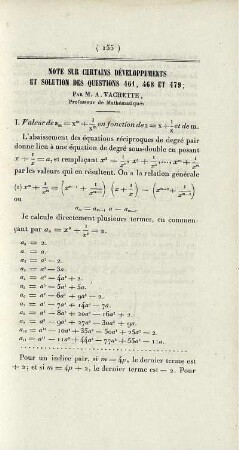 ( 135 )
NOTE SUR CERTAINS DÉVELOPPEMENTS
ET SOLUTION DES QUESTIONS 461, 468 ET 479;
PAR M. A. VACHETTE,
Professeur de Mathématiques
I. Valeur de zₘ = xᵐ + 1/xᵐ en fonction de z = x + 1/x et de m.
L'abaissement des équations réciproques de degré pair
donne lieu à une équation de degré sous-double en posant
x + 1/x = a, et remplaçant x² + 1/x², x³ + 1/x³, ... xᵐ + 1/xᵐ,
par les valeurs qui en résultent. On a la relation générale
(1) xᵐ + 1/xᵐ = (xᵐ⁻¹ + 1/xᵐ⁻¹) (x + 1/x) − (xᵐ⁻² + 1/xᵐ⁻²)
ou
aₘ = aₘ₋₁ a − aₘ₋₂.
Je calcule directement plusieurs termes, en commen-
çant par a₀ = x⁰ + 1/x⁰ = 2.
a₀ = 2.
a₁ = a.
a₂ = a² − 2.
a₃ = a³ − 3a.
a₄ = a⁴ − 4a² + 2.
a₅ = a⁵ − 5a³ + 5a.
a₆ = a⁶ − 6a⁴ + 9a² − 2.
a₇ = a⁷ − 7a⁵ + 14a³ − 7a.
a₈ = a⁸ − 8a⁶ + 20a⁴ − 16a² + 2.
a₉ = a⁹ − 9a⁷ + 27a⁵ − 30a³ + 9a.
a₁₀ = a¹⁰ − 10a⁸ + 35a⁶ − 50a⁴ + 25a² − 2.
a₁₁ = a¹¹ − 11a⁹ + 44a⁷ − 77a⁵ + 55a³ − 11a.
Pour un indice pair, si m = 4p, le dernier terme est
+ 2; et si m = 4p + 2, le dernier terme est − 2. Pour